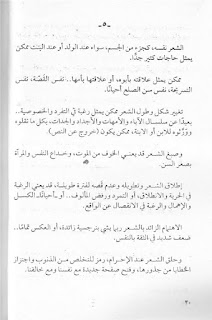 - ٥ -
الشعر نفسه، كجزء من الجسم، سواء عند الولد أو عند البنت ممكن
يمثل حاجات كتير جدًا.
ممكن يمثل علاقته بأبوه، أو علاقتها بأمها.. نفس القَصّة، نفس
التسريحة، نفس سن الصلع أحيانًا.
تغيير شكل وطول الشعر ممكن يمثل رغبة في التفرد والخصوصية..
بعيدًا عن سلسال الآباء والأمهات والأجداد والجدات، بكل ما نقلوه
وورّثوه للابن أو الابنة، ممكن يكون (خروج عن النص).
وصبغ الشعر قد يعني الخوف من الموت، وخداع النفس والمرآة
بصغر السن.
إطلاق الشعر وتطويله وعدم قصه لفترة طويلة، قد يعني الرغبة
في الحرية والانطلاق، أو التمرد ورفض المألوف.. أو أحيانًا الكسل
والإهمال والرغبة في الانفصال عن الواقع.
الاهتمام الزائد بالشعر ربما يشي بنرجسية زائدة، أو العكس تمامًا..
ضعف شديد في الثقة بالنفس.
وحلق الشعر عند الإحرام، رمز للتخلص من الذنوب واجتزاز
الخطايا من جذورها، وفتح صفحة جديدة مع نفسنا ومع خالقنا.